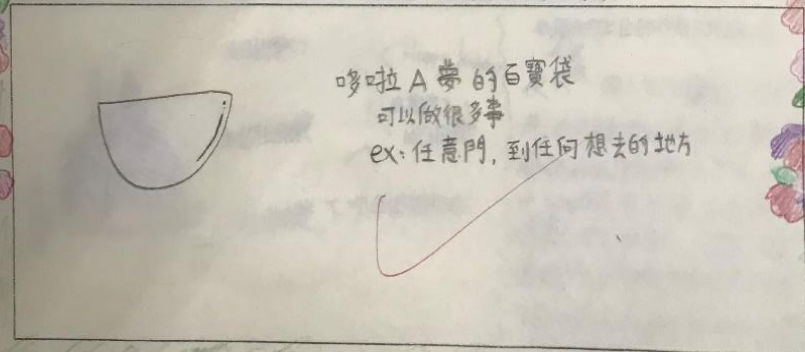 哆啦A夢的百寶袋
可以做很多事
ex:任意門,到任何想去的地方